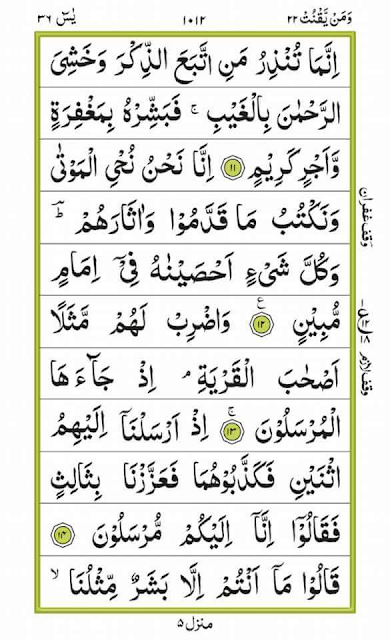 وَمَنْ يَّقْنُتْ ٢٢ ١٠١٢ يٰسٓ ٣٦
اِنَّمَا تُنْذِرُ مَنِ اتَّبَعَ الذِّكْرَ وَخَشِيَ
الرَّحْمٰنَ بِالْغَيْبِ ۚ فَبَشِّرْهُ بِمَغْفِرَةٍ
وَّاَجْرٍ كَرِيْمٍ ﴿١١﴾ اِنَّا نَحْنُ نُحْيِ الْمَوْتٰى
وَنَكْتُبُ مَا قَدَّمُوْا وَاٰثَارَهُمْ ؕ
وَكُلَّ شَيْءٍ اَحْصَيْنٰهُ فِيْۤ اِمَامٍ
مُّبِيْنٍ ﴿١٢﴾ ع وَاضْرِبْ لَهُمْ مَّثَلًا
اَصْحٰبَ الْقَرْيَةِ ۘ اِذْ جَآءَهَا
الْمُرْسَلُوْنَ ﴿١٣﴾ ۚ اِذْ اَرْسَلْنَاۤ اِلَيْهِمُ
اثْنَيْنِ فَكَذَّبُوْهُمَا فَعَزَّزْنَا بِثَالِثٍ
فَقَالُوْۤا اِنَّاۤ اِلَيْكُمْ مُّرْسَلُوْنَ ﴿١٤﴾
قَالُوْا مَاۤ اَنْتُمْ اِلَّا بَشَرٌ مِّثْلُنَا ۙ
وقف غفران
وقف لازم
منزل ٥